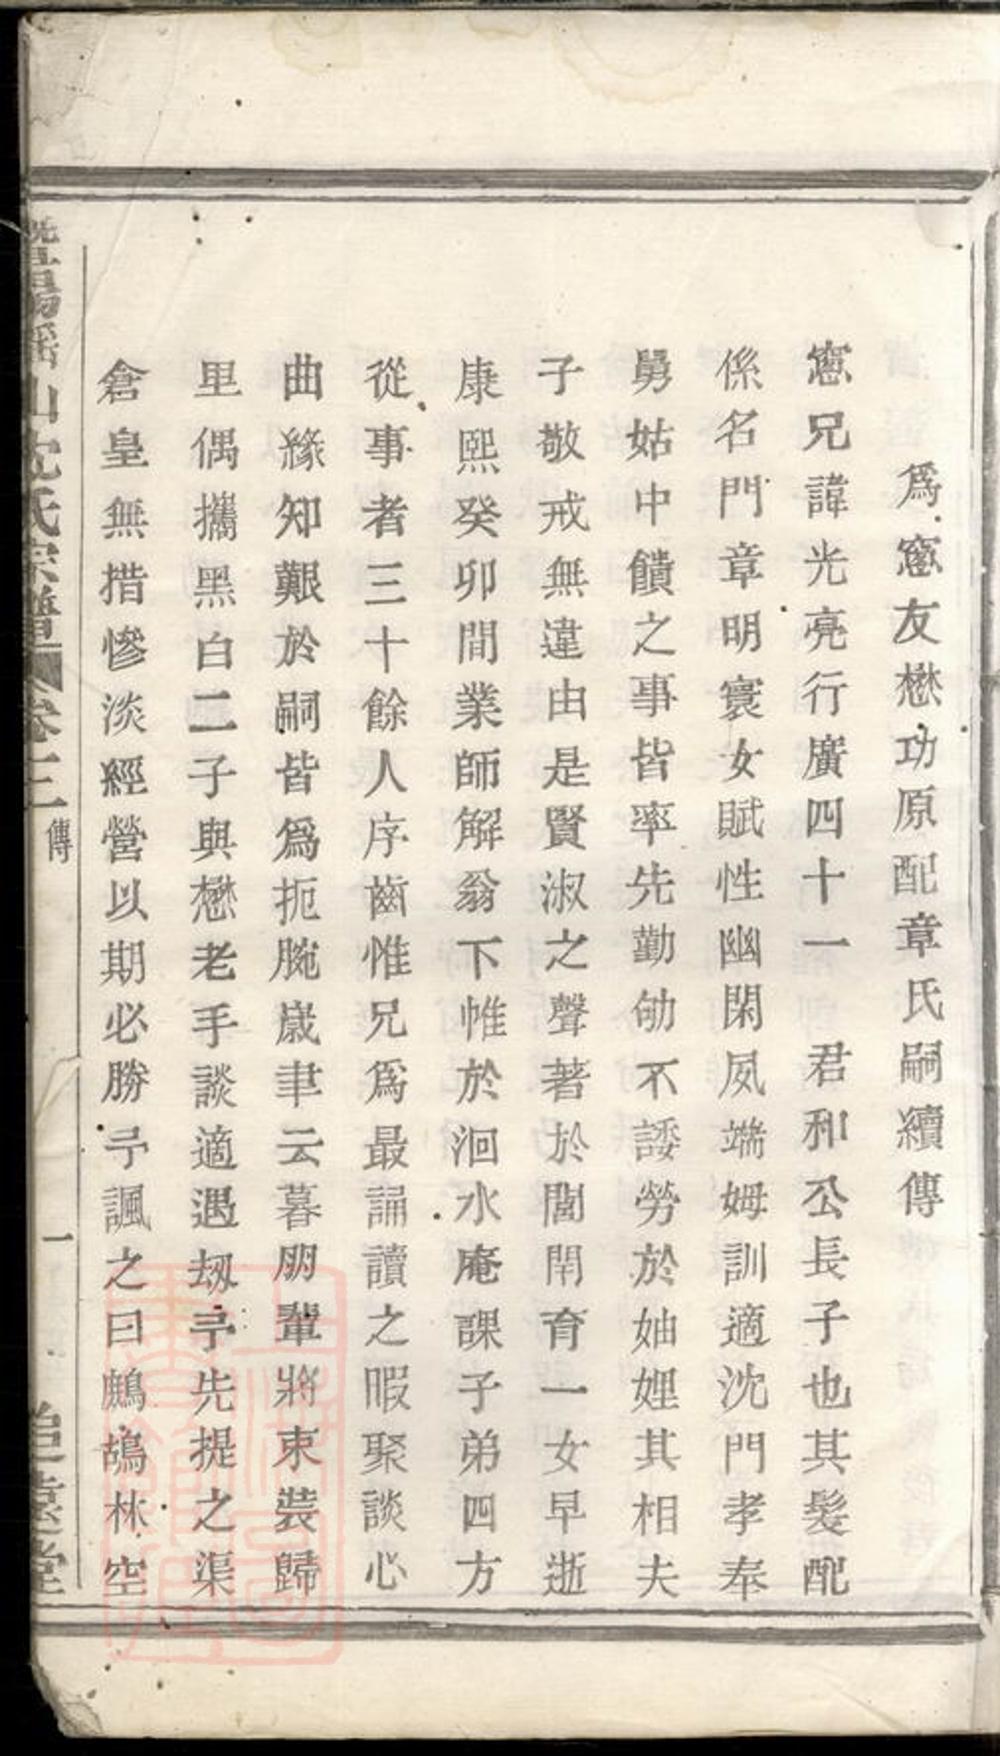 爲窓友懋功原配章氏嗣續傳
窓兄諱光亮行廣四十一　君和公長子也其髮配
係名門章明寰女賦性幽閑夙端姆訓適沈門孝奉
舅姑中饋之事皆率先勤劬不諉勞於妯娌其相夫
子敬戒無違由是賢淑之聲著於閫閈育一女早逝
康熙癸卯間業師解翁下帷於洄水庵課子弟四方
從事者三十餘人序齒惟兄爲最誦讀之暇聚談心
曲緣知艱於嗣皆爲扼腕歲聿云暮朋輩將束裝歸
里偶攜黑白二子與懋老手談適遇刼予先提之渠
倉皇無措慘淡經營以期必勝予諷之曰鷓鴣林空
暨陽 山沈氏宗譜 卷三 傳 一 追遠堂